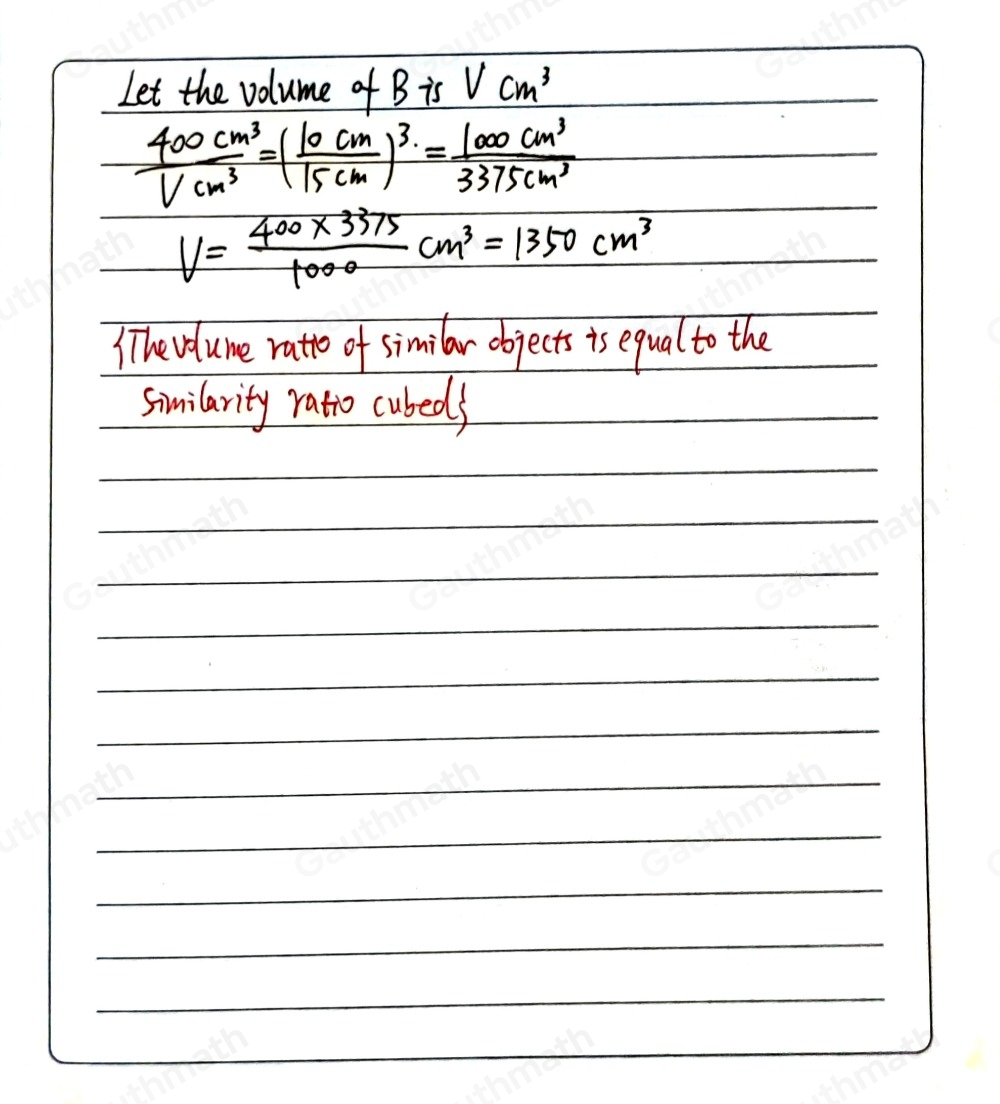 Let the volume of B is V cm³
400 cm³ / V cm³ = (10 cm / 15 cm)³. = 1000 cm³ / 3375 cm³
V = 400 × 3375 / 1000 cm³ = 1350 cm³
{The volume ratio of similar objects is equal to the
similarity ratio cubed}
Gauthmath